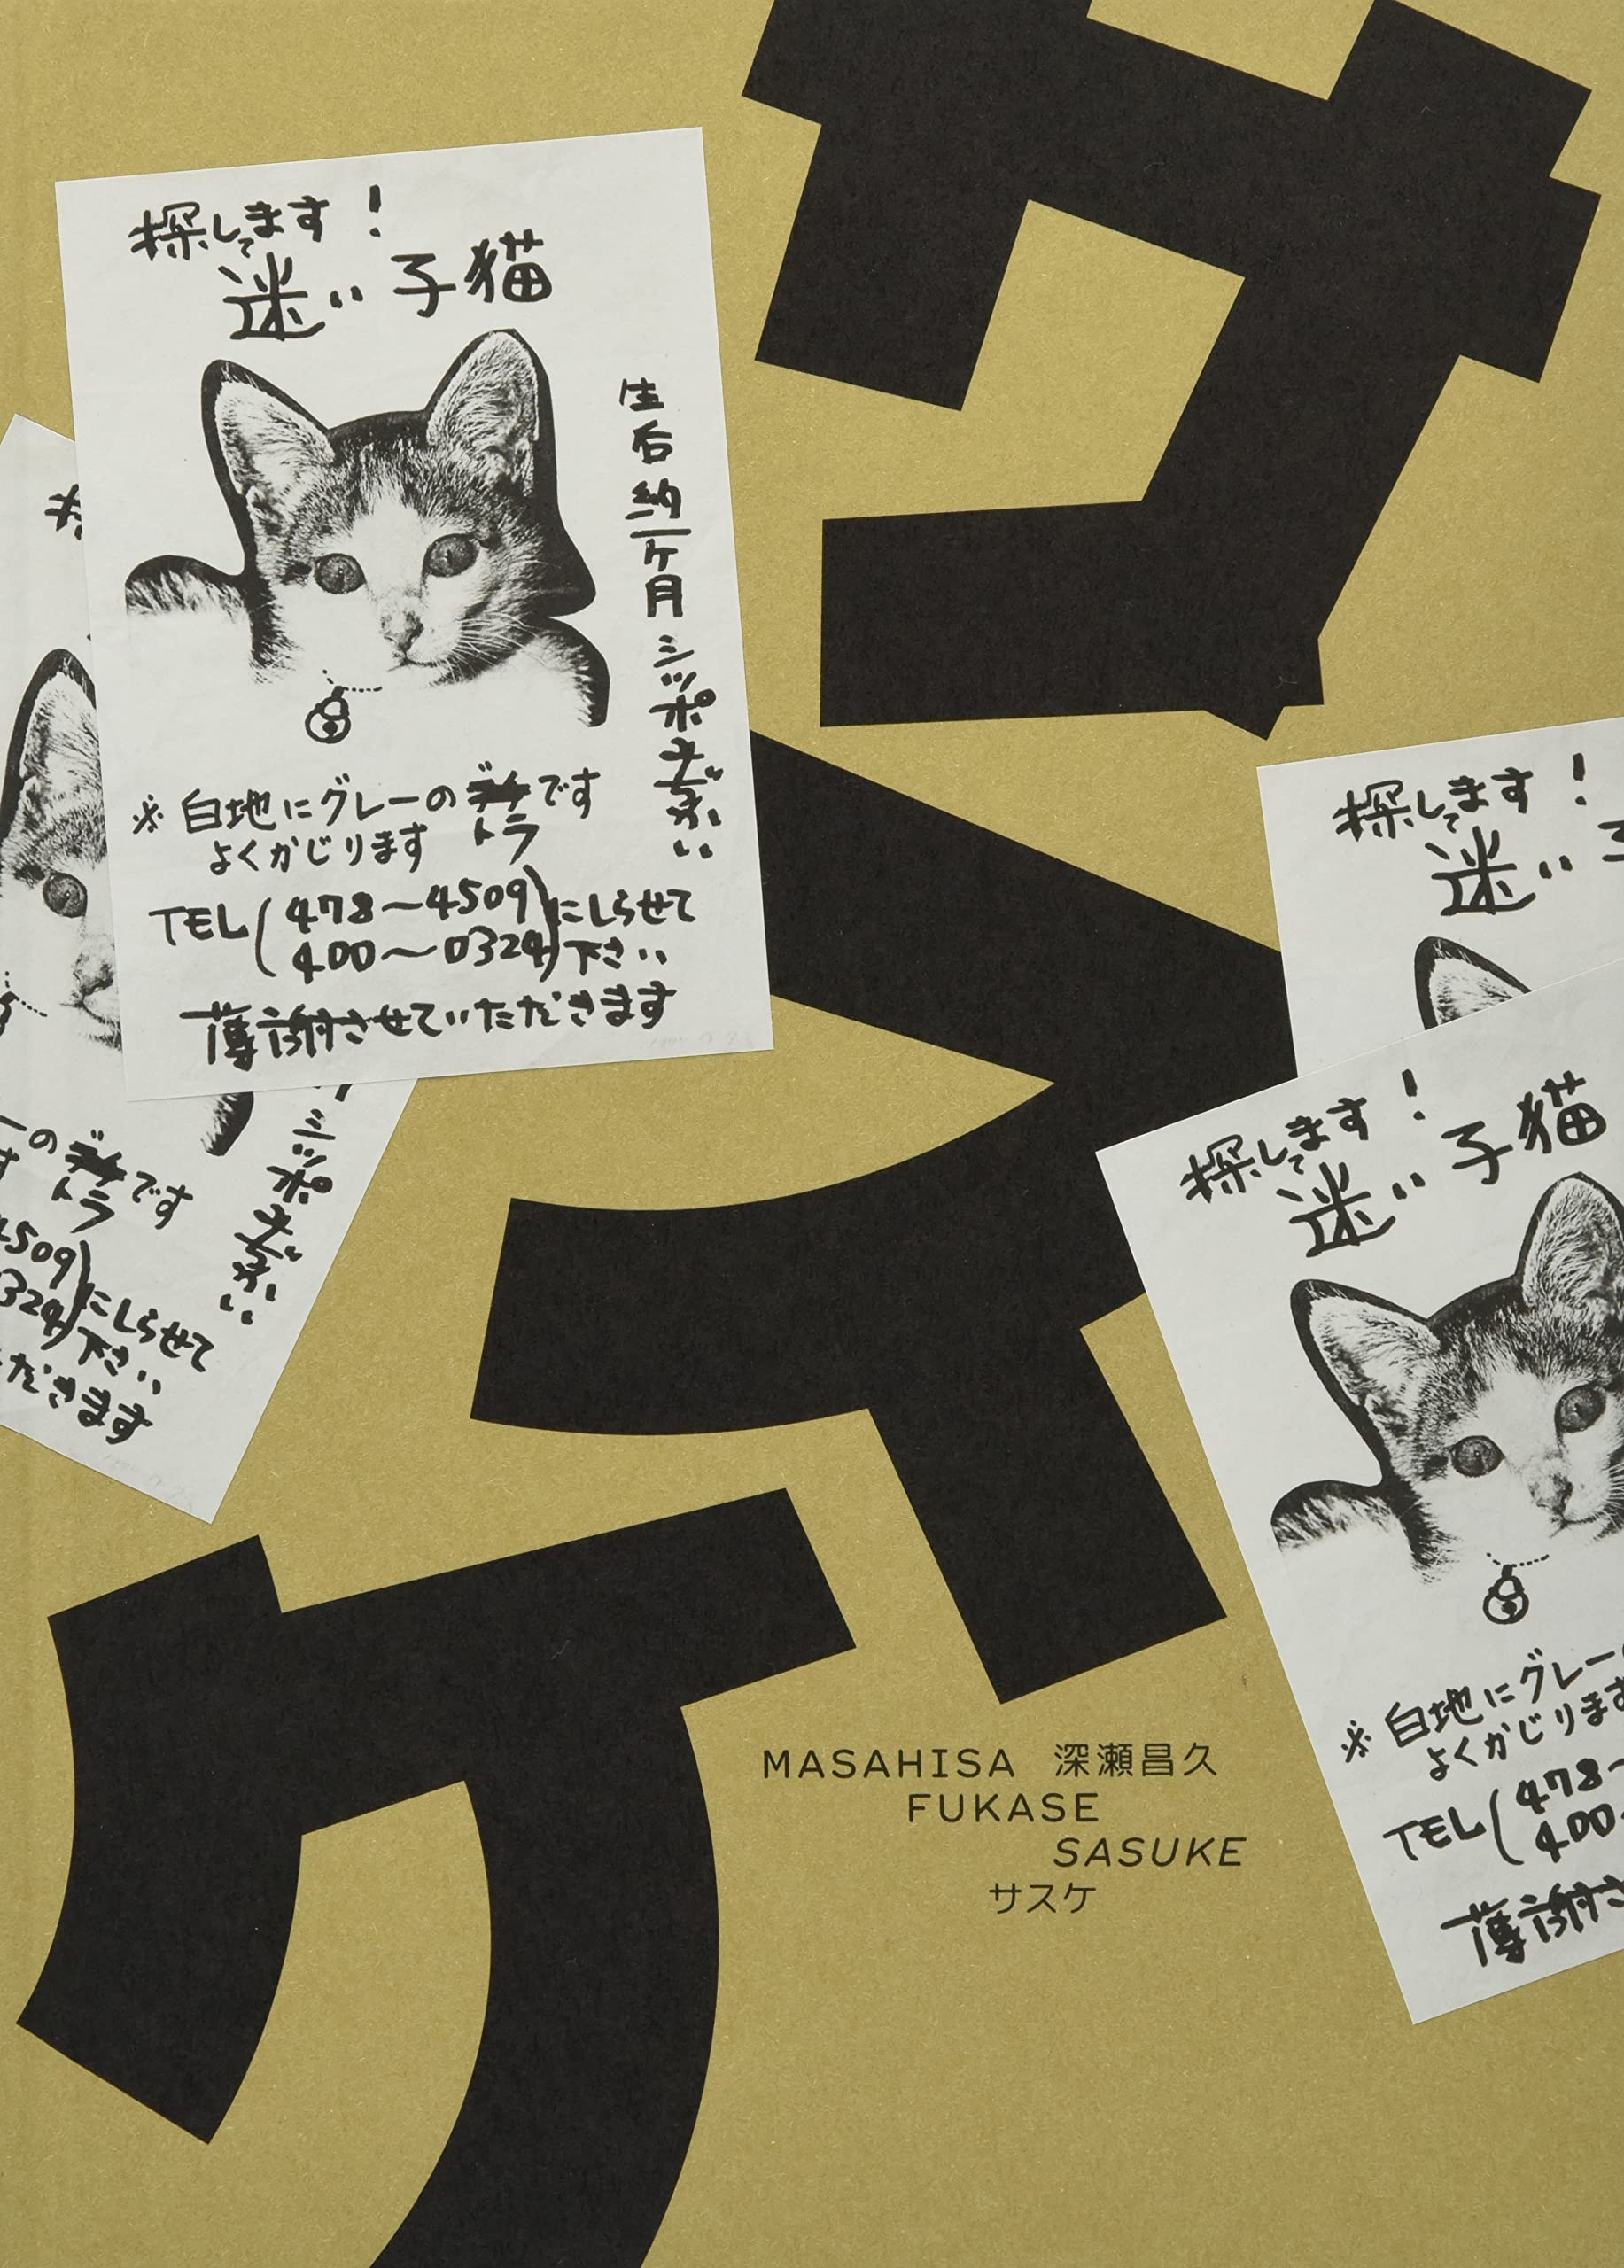 サスケ
探してます！
迷い子猫
生后約一ケ月 シッポ
※白地にグレーのトラです
よくかじります
TEL(478〜4509
400〜0324)にしらせて下さい
薄謝させていただきます
ーの トラ です
シッポ
509
324)にしらせて下さい
だきます
探してます！
迷い
探してます！
迷い子猫
※白地にグレー
よくかじります
TEL(478〜
400
薄謝さ
MASAHISA 深瀬昌久
FUKASE
SASUKE
サスケ